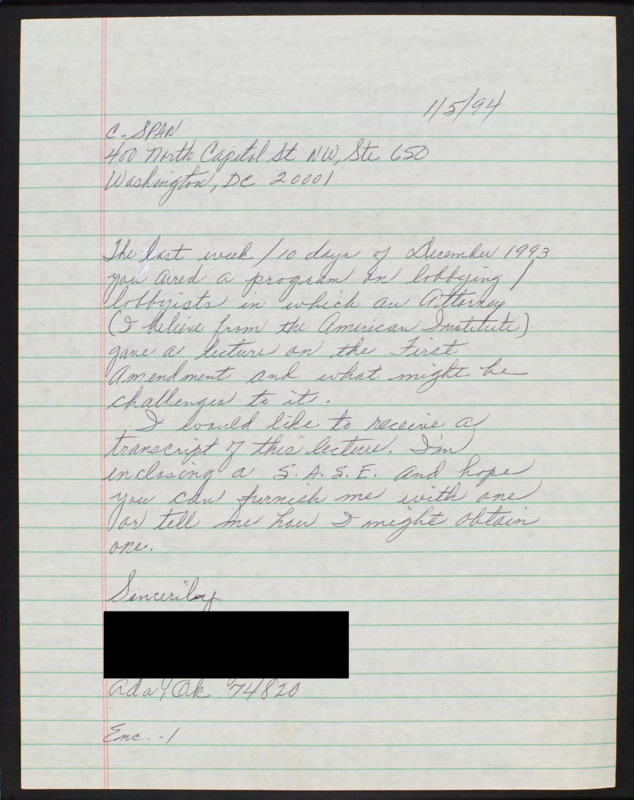 1/5/94
C-SPAN
400 North Capital St NW, Ste 650
Washington, DC 20001
The last week/10 days of December 1993
you aired a program on lobbying/
lobbyists in which an Attorney
(I believe from the American Institute)
gave a lecture on the First
Amendment and what might be
challenges to it.
I would like to receive a
transcript of this lecture. I'm
enclosing a S.A.S.E. and hope
you can furnish me with one
or tell me how I might obtain
one.
Sincerily
Ada, Ok 74820
Enc.-1